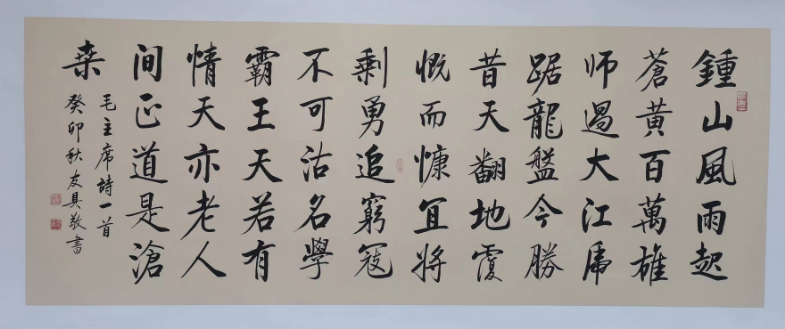 鍾山風雨起
蒼黃百萬雄
師過大江虎
踞龍盤今勝
昔天翻地覆
慨而慷宜將
剩勇追窮寇
不可沽名學
霸王天若有
情天亦老人
間正道是滄
桑
毛主席詩一首
癸卯秋友具敬書